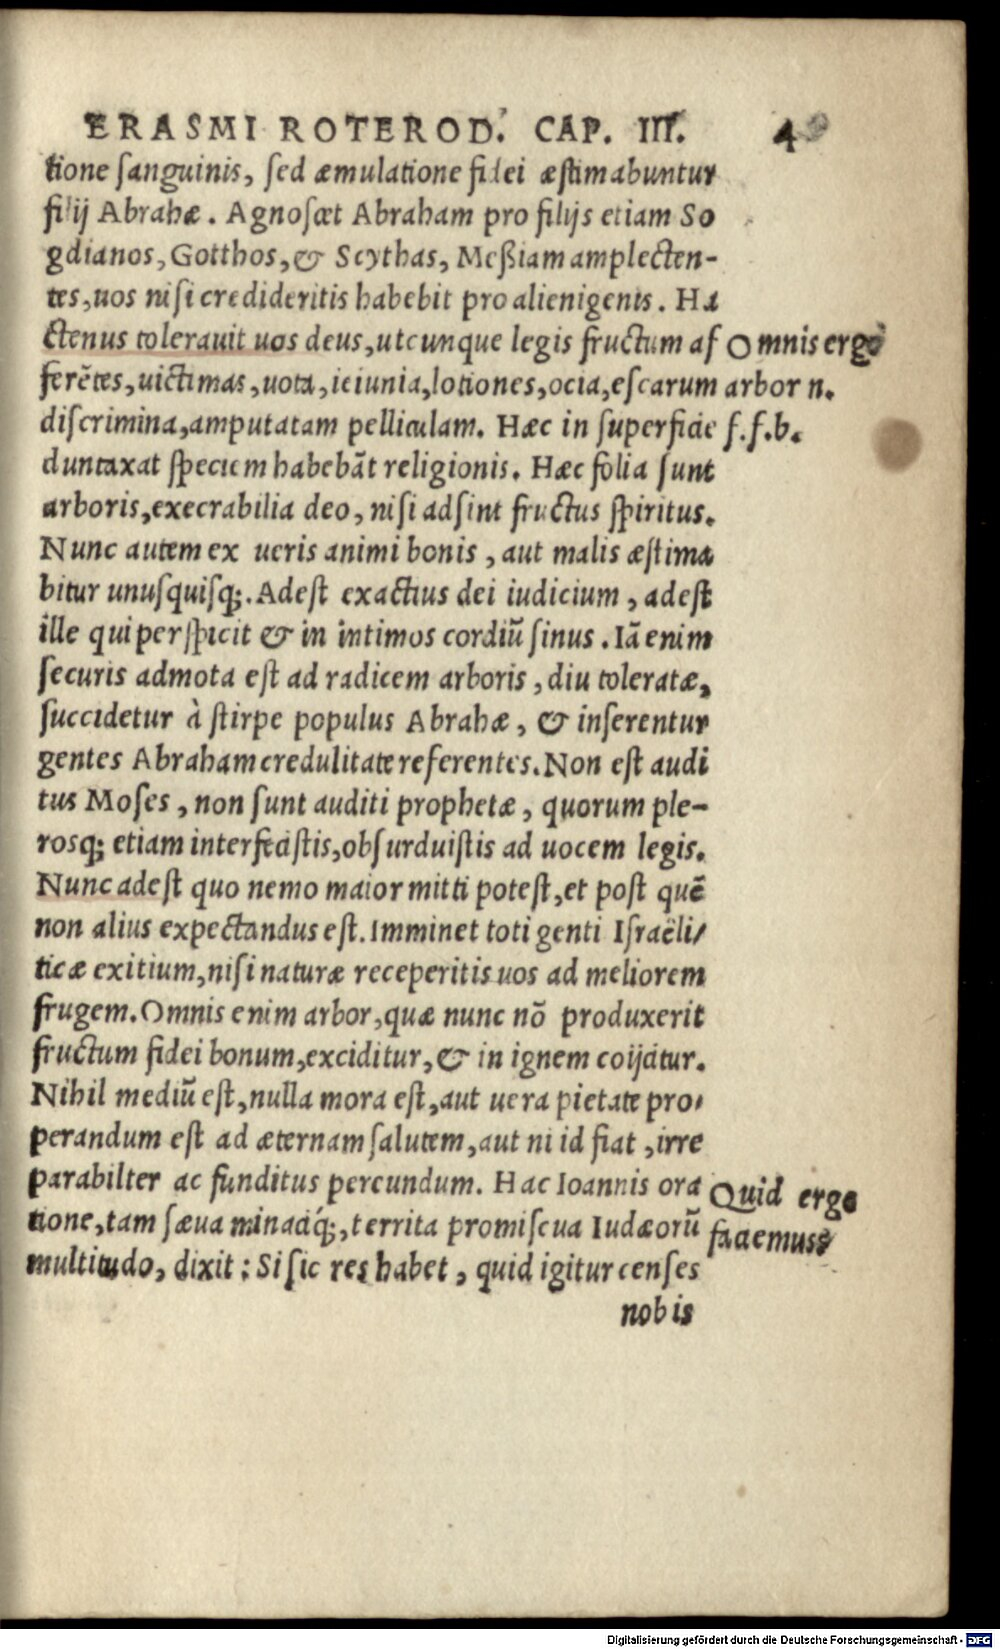 ERASMI ROTEROD. CAP. III. 4
tione sanguinis, sed æmulatione fidei æstimabuntur
filij Abrahæ. Agnoscet Abraham pro filijs etiam So
gdianos, Gotthos, & Scythas, Meßiam amplecten-
tes, uos nisi credideritis habebit pro alienigenis. Ha
ctenus tolerauit uos deus, utcunque legis fructum af
ferētes, uictimas, uota, ieiunia, lotiones, ocia, escarum
discrimina, amputatam pelliculam. Hæc in superficie
duntaxat speciem habebāt religionis. Hæc folia sunt
arboris, execrabilia deo, nisi adsint fructus spiritus.
Nunc autem ex ueris animi bonis, aut malis æstima
bitur unusquisq;. Adest exactius dei iudicium, adest
ille qui perspicit & in intimos cordiū sinus. Iā enim
securis admota est ad radicem arboris, diu toleratæ,
succidetur à stirpe populus Abrahæ, & inserentur
gentes Abraham credulitate referentes. Non est audi
tus Moses, non sunt auditi prophetæ, quorum ple-
rosq; etiam interfecistis, obsurduistis ad uocem legis.
Nunc adest quo nemo maior mitti potest, et post quē
non alius expectandus est. Imminet toti genti Israëli/
ticæ exitium, nisi naturæ receperitis uos ad meliorem
frugem. Omnis enim arbor, quæ nunc nō produxerit
fructum fidei bonum, exciditur, & in ignem coijcitur.
Nihil mediū est, nulla mora est, aut uera pietate pro/
perandum est ad æternam salutem, aut ni id fiat, irre
parabilter ac funditus percundum. Hac Ioannis ora
tione, tam sæua minaciq́;, territa promiscua Iudæorū
multitudo, dixit: Si sic res habet, quid igitur censes
nobis
Omnis ergo
arbor n.
f. f. b.
Quid ergo
faciemus?
Digitalisierung gefördert durch die Deutsche Forschungsgemeinschaft - DFG